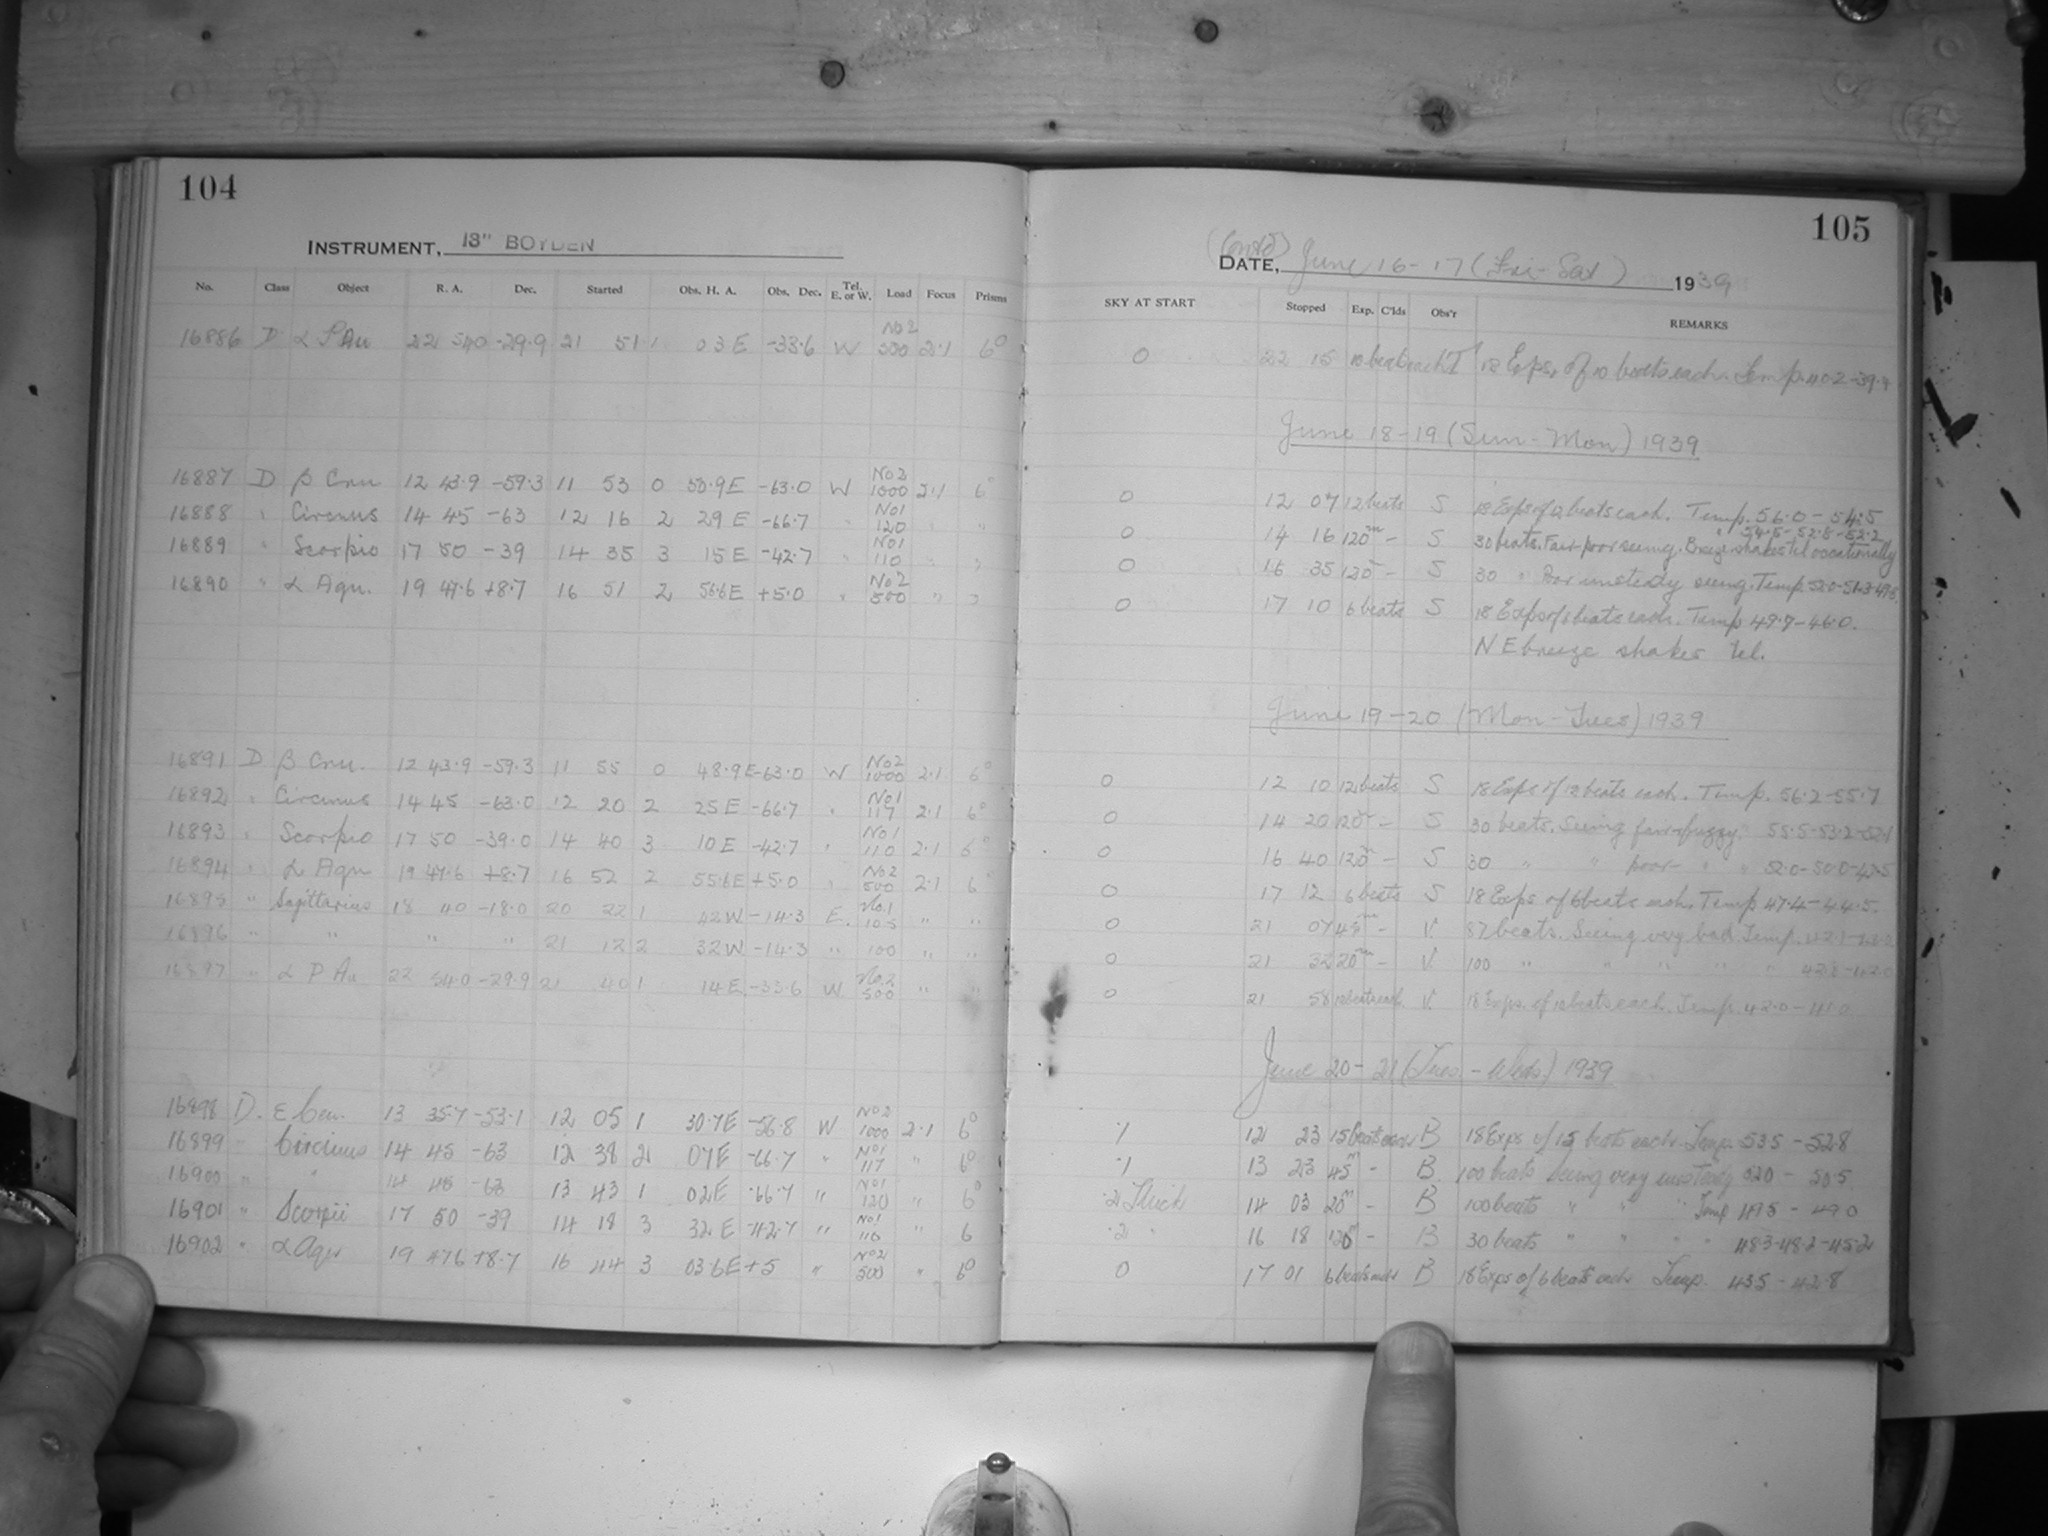 104
INSTRUMENT, 13" BOYDEN
No. Class Object R. A. Dec. Started Obs. H. A. Obs. Dec. Tel. E. or W. Load Focus Prisms
16886 D α P Au 22 54.0 -29.9 21 51 1 03 E -33.6 W No 2 500 2.1 6°
16887 D β Cru 12 43.9 -59.3 11 53 0 50.9E -63.0 W No 2 1000 2.1 6°
16888 " Circinus 14 45 -63 12 16 2 29 E -66.7 " No 1 120 " "
16889 " Scorpio 17 50 -39 14 35 3 15 E -42.7 " No 1 110 " "
16890 " α Aqu. 19 47.6 +8.7 16 51 2 56.6E +5.0 " No 2 500 " "
16891 D β Cru. 12 43.9 -59.3 11 55 0 48.9E -63.0 W No 2 1000 2.1 6°
16892 " Circinus 14 45 -63.0 12 20 2 25 E -66.7 " No 1 117 2.1 6°
16893 " Scorpio 17 50 -39.0 14 40 3 10 E -42.7 " No 1 110 2.1 6°
16894 " α Aqu 19 47.6 +8.7 16 52 2 55.6E +5.0 " No 2 500 2.1 6°
16895 " Sagittarius 18 40 -18.0 20 22 1 42W -14.3 E. No. 1 105 " "
16896 " " " " 21 12 2 32W -14.3 " 100 " "
16897 " α P Au 22 54.0 -29.9 21 40 1 14E -33.6 W No. 2 500 " "
16898 D. ε Cen. 13 35.7 -53.1 12 05 1 30.7E -56.8 W No 2 1000 2.1 6°
16899 " Circinus 14 45 -63 12 38 2 07E -66.7 " No 1 117 " 6°
16900 " " 14 45 -63 13 43 1 02E -66.7 " No 1 120 " 6°
16901 " Scorpii 17 50 -39 14 18 3 32 E -42.7 " No 1 116 " 6
16902 " α Aqr 19 47.6 +8.7 16 44 3 03.6E +5 " No 2 500 " 6°
105
(Contd)
DATE, June 16-17 (Fri-Sat) 1939
SKY AT START Stopped Exp. C'lds Obs'r REMARKS
0 22 15 10 beats each T 18 Exps. of 10 beats each. Temp. 40.2-39.4
June 18-19 (Sun-Mon) 1939
0 12 07 12 beats S 18 Exps of 12 beats each. Temp. 56.0-54.5
" 54.5-52.8-52.2
0 14 16 120m - S 30 beats. Fair poor seeing. Breeze shakes tel occationally
0 16 35 120m - S 30 " Poor unsteady seeing. Temp. 52.0-51.3-49.8
0 17 10 6 beats S 18 Exps of 6 beats each. Temp 49.7-46.0.
N E breeze shakes tel.
June 19-20 (Mon-Tues) 1939
0 12 10 12 beats S 18 Exps of 12 beats each. Temp. 56.2-55.7
0 14 20 120m - S 30 beats. Seeing fair fuzzy. 55.5-53.2-52.1
0 16 40 120m - S 30 " " poor " " 52.0-50.0-47.5
0 17 12 6 beats S 18 Exps of 6 beats each. Temp 47.4-44.5.
0 21 07 45m - V. 87 beats. Seeing very bad. Temp.
0 21 32 20m - V. 100 " " " " " 42.8-42.0
0 21 58 10 beats each V. 18 Exps. of 10 beats each. Temp. 42.0-41.0
June 20-21 (Tues.-Weds) 1939
.1 12 23 15 beats each B 18 Exps of 15 beats each Temp. 53.5-52.8
.1 13 23 45m - B 100 beats Seeing very unsteady 52.0-50.5
.2 Thick 14 03 20m - B 100 beats " " " Temp 49.5-49.0
.2 " 16 18 120m - B 30 beats " " " " 48.3-48.2-45.2
0 17 01 6 beats each B 18 Exps of 6 beats each Temp. 43.5-42.8